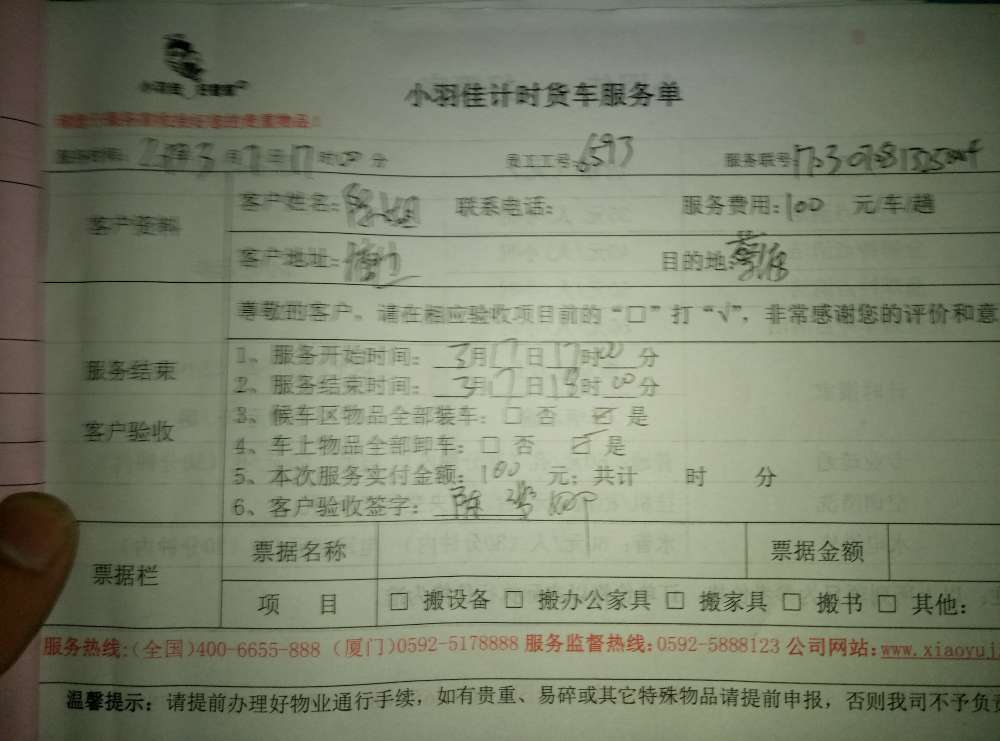 小羽佳计时货车服务单
服务时间: 年3月17日17时00分 员工工号: 6593 服务联号
客户资料
客户姓名: 联系电话: 服务费用: 100 元/车/趟
客户地址: 目的地:
尊敬的客户,请在相应验收项目前的“□”打“√”,非常感谢您的评价和意
服务结束
客户验收
1、服务开始时间: 3月17日17时00分
2、服务结束时间: 3月17日18时00分
3、候车区物品全部装车: □ 否 ☑ 是
4、车上物品全部卸车: □ 否 ☑ 是
5、本次服务实付金额: 100 元; 共计 时 分
6、客户验收签字: 陈
票据栏
票据名称 票据金额
项 目 □ 搬设备 □ 搬办公家具 □ 搬家具 □ 搬书 □ 其他:
服务热线:(全国)400-6655-888 (厦门)0592-5178888 服务监督热线:0592-5888123 公司网站:www.xiaoyuj
温馨提示: 请提前办理好物业通行手续, 如有贵重、易碎或其它特殊物品请提前申报, 否则我司不予负责